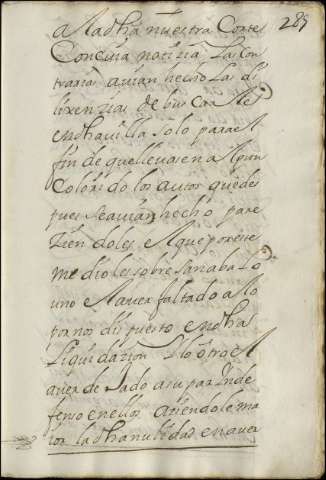 289
a la dha nuestra Corte
Con cuia notizia Las con
trarias avian hecho Las di
lixenzias de buscarle
en dha villa solo para el
fin de que llevasen algun
Colorido los autos que des
pues se avian hecho pare
ziendoles el que por este
medio le sobre sanaba lo
uno el aver faltado a lo
por nos dispuesto en dha
Liquidazion Y lo otro el
aver dejado a su parte inde
fenso en ellos aziendole ma
ior la dha nulidad en aver